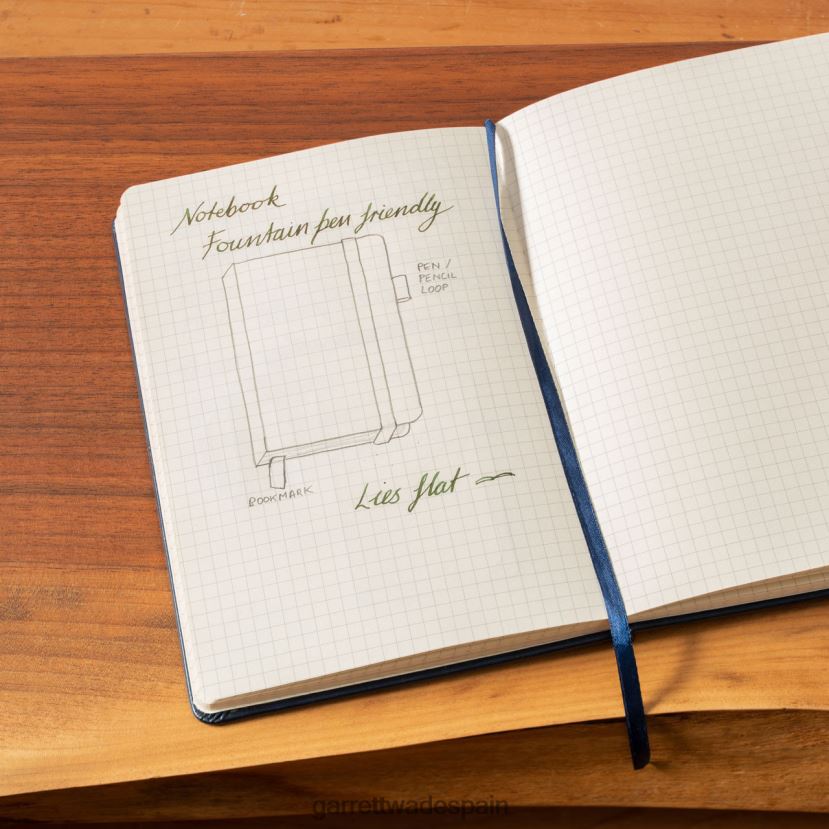 Notebook
Fountain pen friendly
PEN /
PENCIL
LOOP
BOOKMARK
Lies flat
garrettwadespain